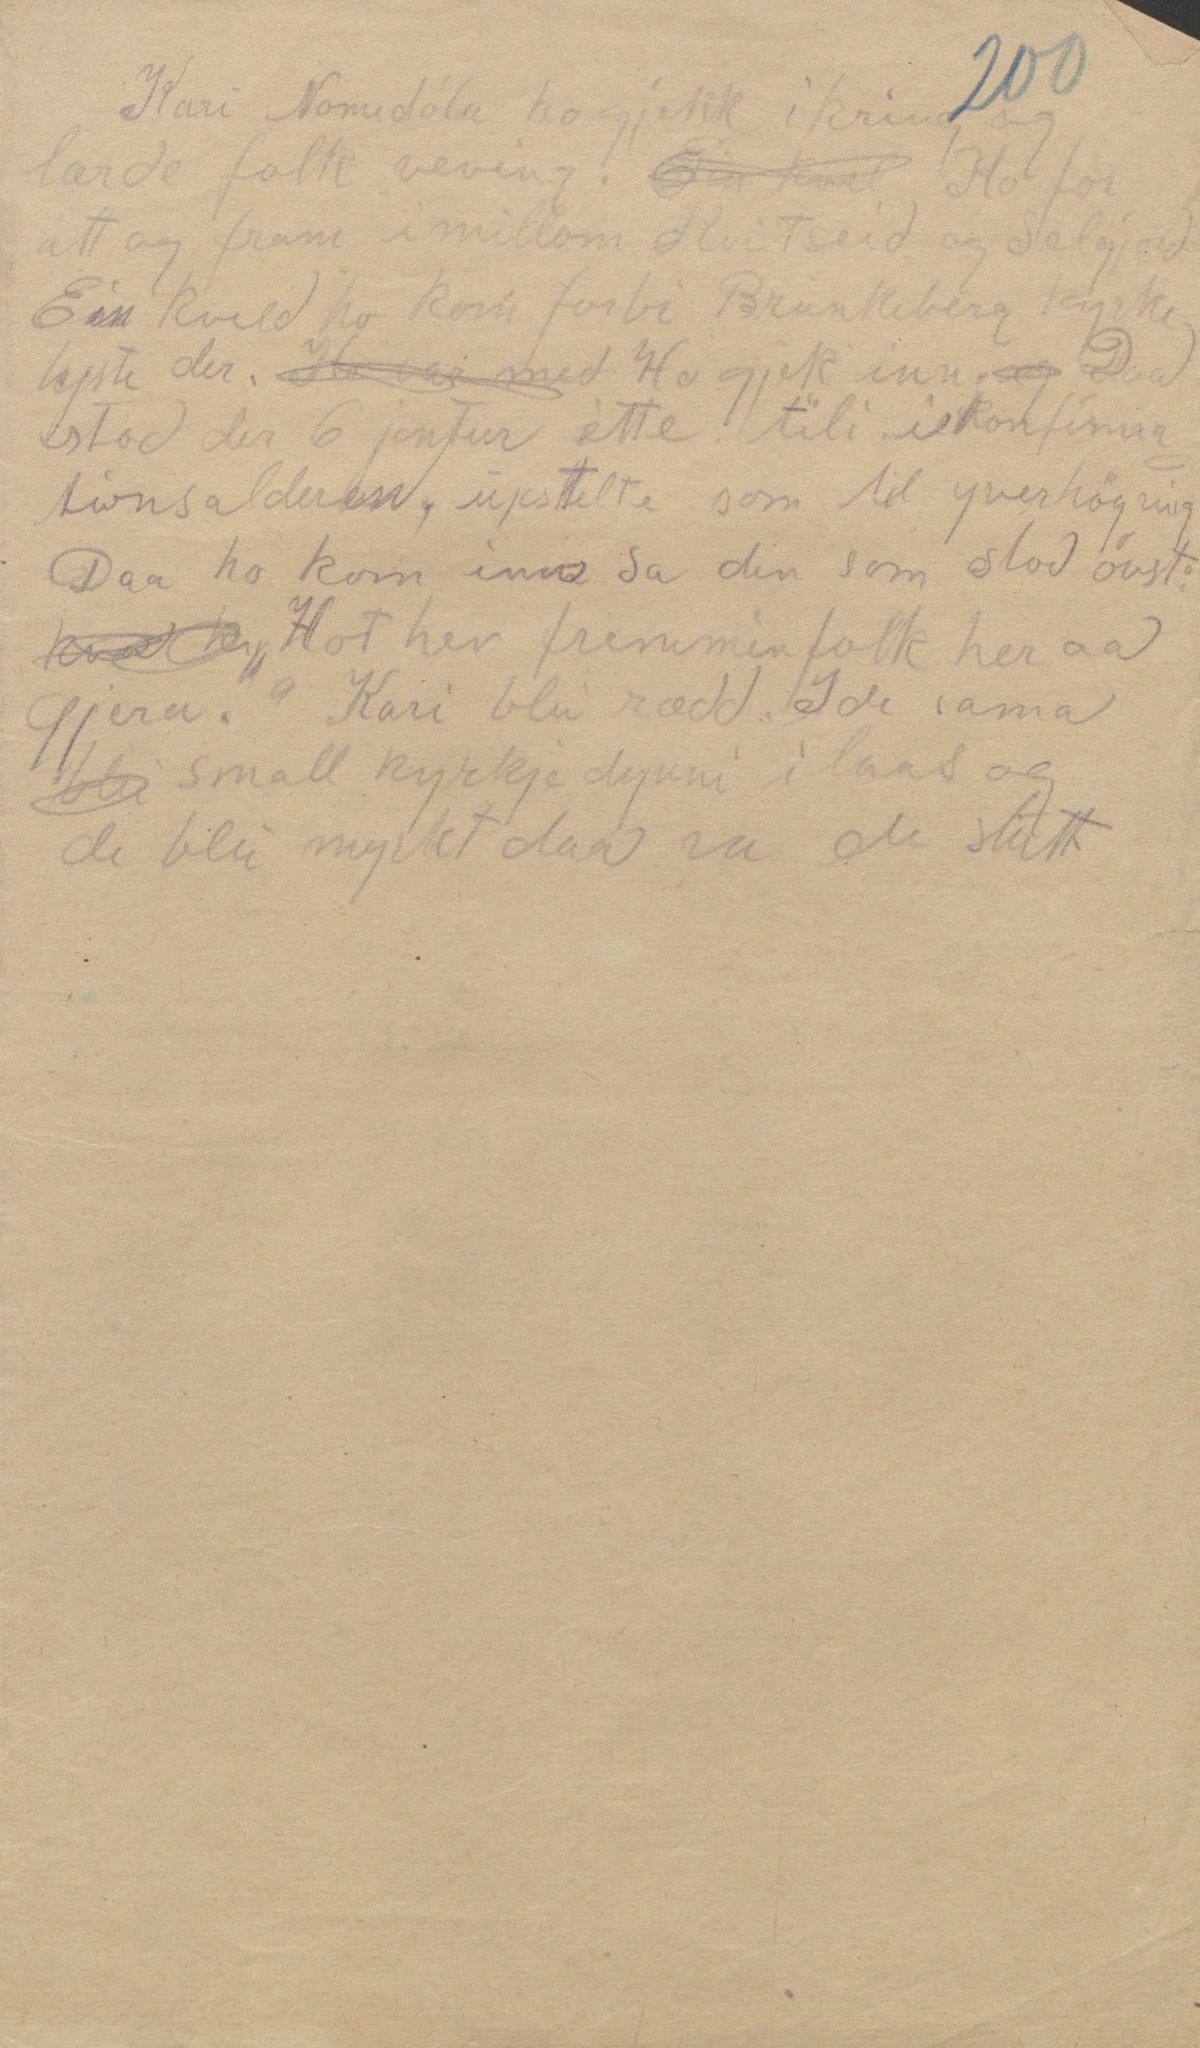 200
Kari Nomedólu ho gjekk ikring og
lærde folk veving. Ein kvel Ho for
att og fram imillom Kvitseid og Selgjord
Ein kveld ho kom forbi Brunkeberg kyrke
lyste der. Ho var med Ho gjek inn. og Daa
stod der 6 jentur ette tili i konfirma
tionsalderen, upstelte som til yverhøyring
Daa ho kom inn sa den som stod övst:
"Hot hev fremminfolk her aa
gjera." Kari blei rædd. I de sama
blei small kyrkjedynni i laas og
de blei myrkt daa va de slutt